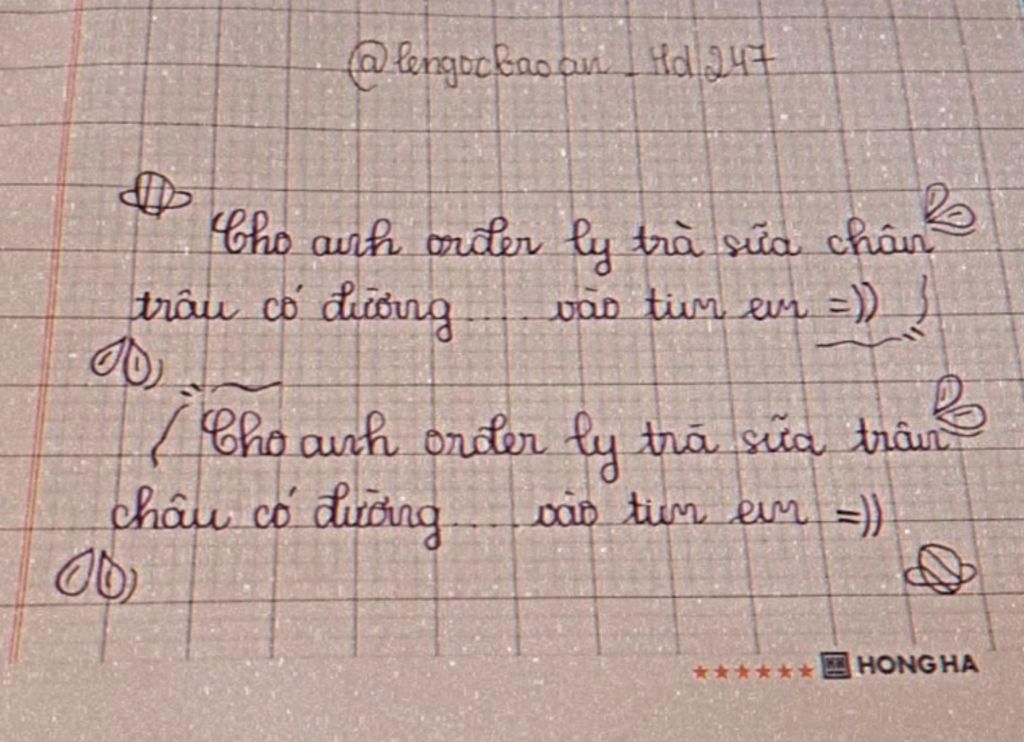 @lengocbaoan_Hd247
Cho anh order ly trà sữa chân
trâu có đường.... vào tim em =))
Cho anh order ly trà sữa trân
châu có đường.... vào tim em =))
HONG HA